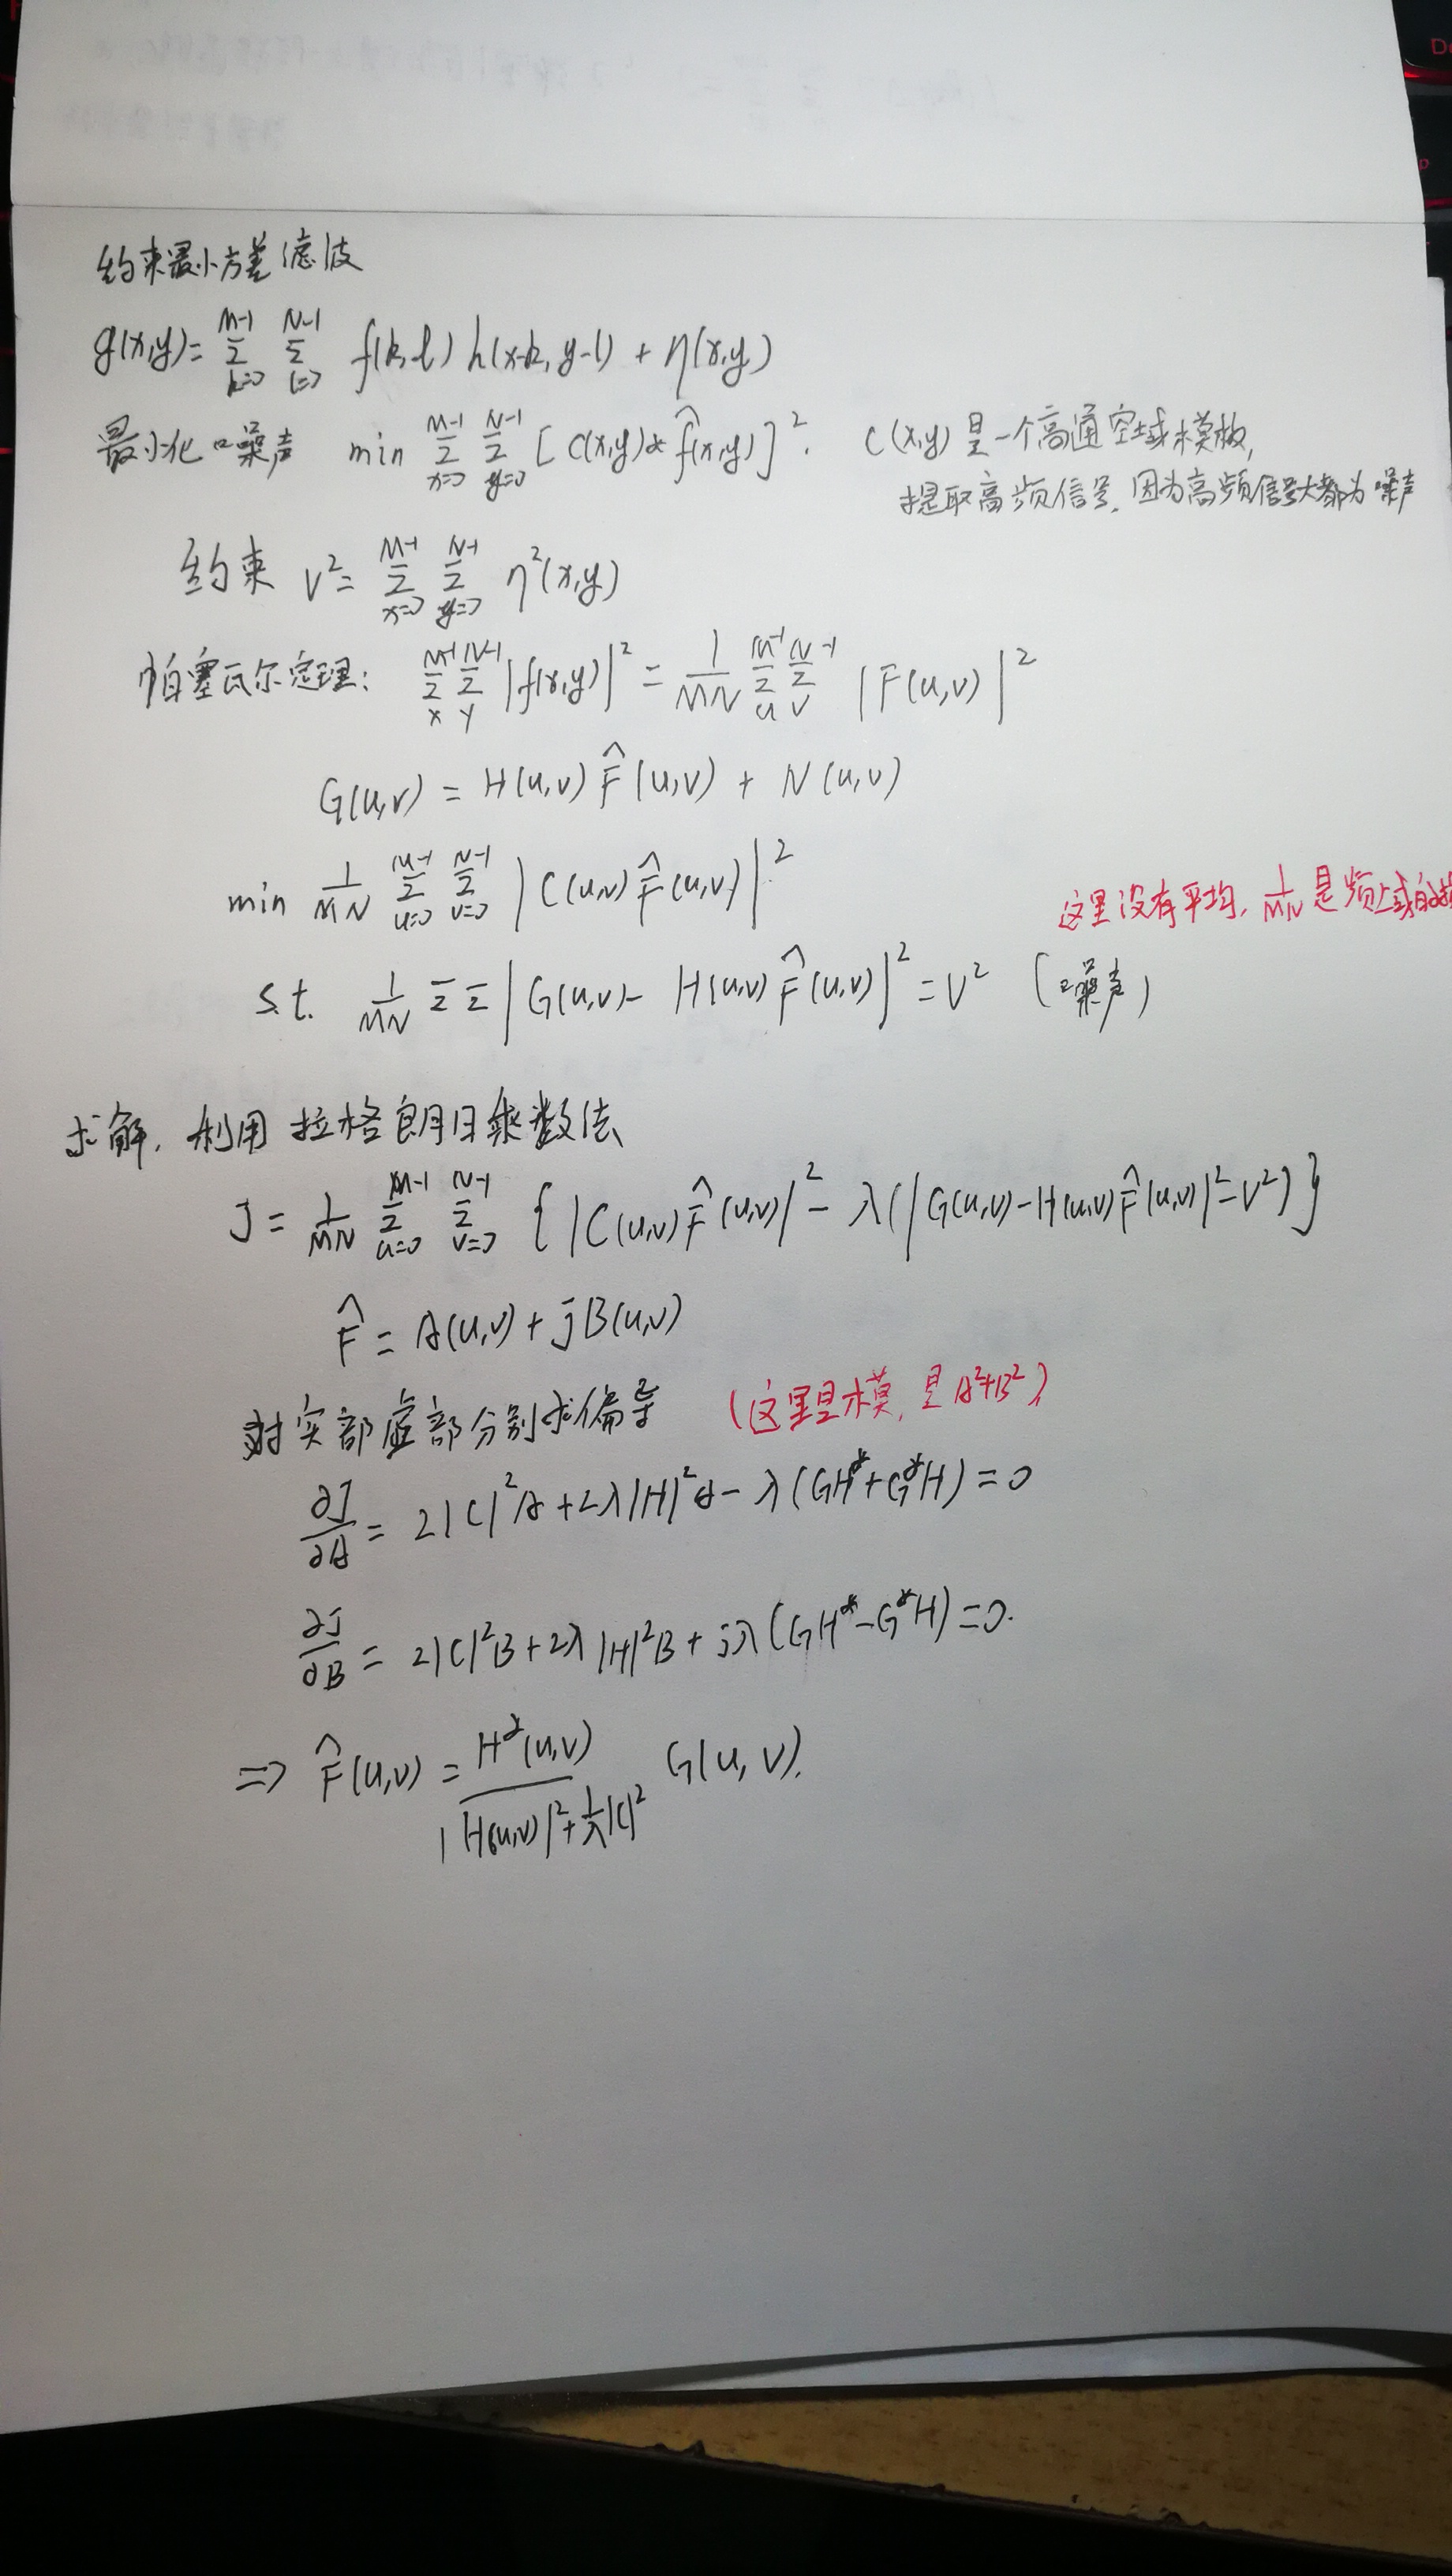 约束最小方差滤波
g(x,y)= Σ_{k=0}^{M-1} Σ_{l=0}^{N-1} f(k,l) h(x-k, y-l) + η(x,y)
最小化噪声 min Σ_{x=0}^{M-1} Σ_{y=0}^{N-1} [C(x,y)*f̂(x,y)]². C(x,y)是一个高通空域模板,
提取高频信号,因为高频信号大都为噪声
约束 V²= Σ_{x=0}^{M-1} Σ_{y=0}^{N-1} η²(x,y)
帕塞瓦尔定理: Σ_x^{M-1} Σ_y^{N-1} |f(x,y)|² = 1/MN Σ_u^{M-1} Σ_v^{N-1} |F(u,v)|²
G(u,v) = H(u,v) F̂(u,v) + N(u,v)
min 1/MN Σ_{u=0}^{M-1} Σ_{v=0}^{N-1} |C(u,v) F̂(u,v)|²
这里没有平均, 1/MN 是频域的
s.t. 1/MN Σ Σ |G(u,v) - H(u,v) F̂(u,v)|² = V² (噪声)
求解,利用拉格朗日乘数法
J = 1/MN Σ_{u=0}^{M-1} Σ_{v=0}^{N-1} { |C(u,v) F̂(u,v)|² - λ(|G(u,v) - H(u,v) F̂(u,v)|² - V²) }
F̂ = A(u,v) + jB(u,v)
对实部虚部分别求偏导 (这里是模, 是A²+B²)
∂J/∂A = 2|C|²A + 2λ|H|²A - λ(GH*+G*H) = 0
∂J/∂B = 2|C|²B + 2λ|H|²B + jλ(GH*-G*H) = 0.
=> F̂(u,v) = H*(u,v) / (|H(u,v)|² + 1/λ|C|²) G(u,v).